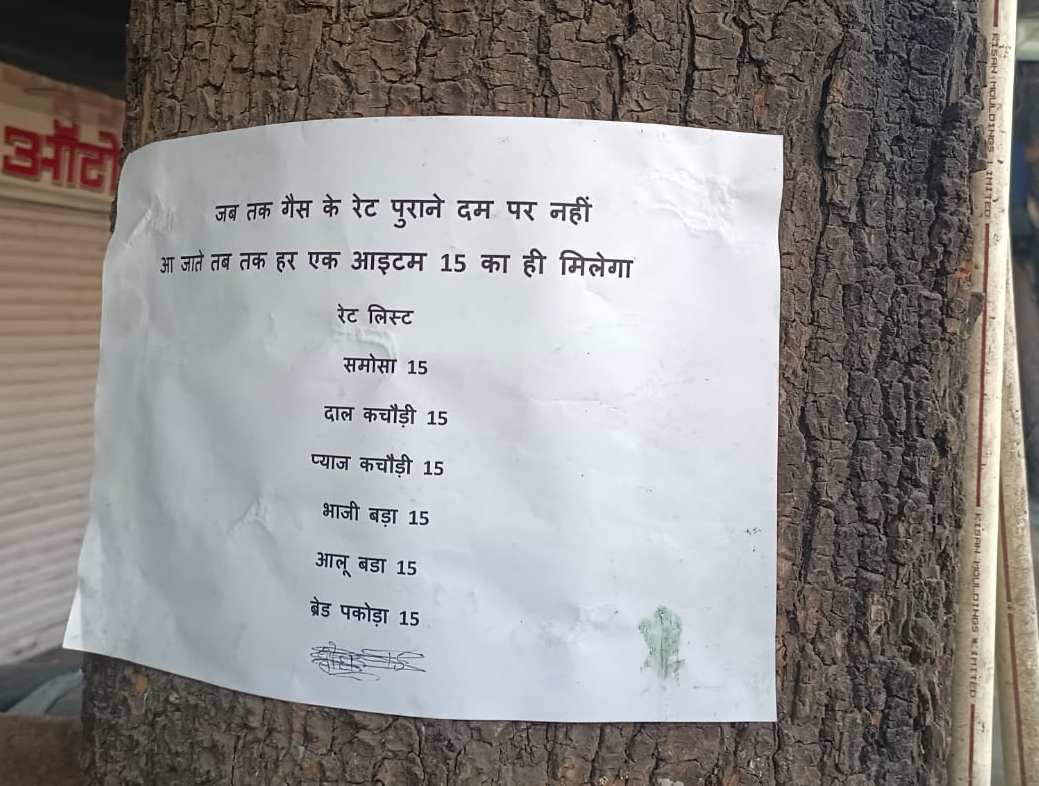 ऑटो
जब तक गैस के रेट पुराने दम पर नहीं
आ जाते तब तक हर एक आइटम 15 का ही मिलेगा
रेट लिस्ट
समोसा 15
दाल कचौड़ी 15
प्याज कचौड़ी 15
भाजी बड़ा 15
आलू बडा 15
ब्रेड पकोड़ा 15
KISAN MOULDINGS LIMITED
KISAN MOULDINGS LIMITED